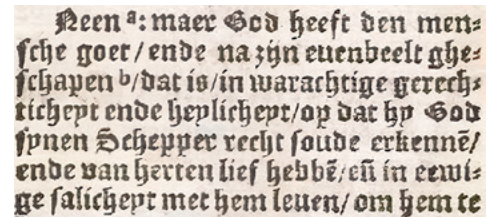 Neen ᵃ: maer God heeft den men⸗
ſche goet/ ende na zijn euenbeelt ghe⸗
ſchapen ᵇ/ dat is/ in warachtige gerech⸗
ticheyt ende heylicheyt/ op dat hy God
ſynen Schepper recht ſoude erkennē/
ende van herten lief hebbē/ eñ in eewi⸗
ge ſalicheyt met hem leuen/ om hem te